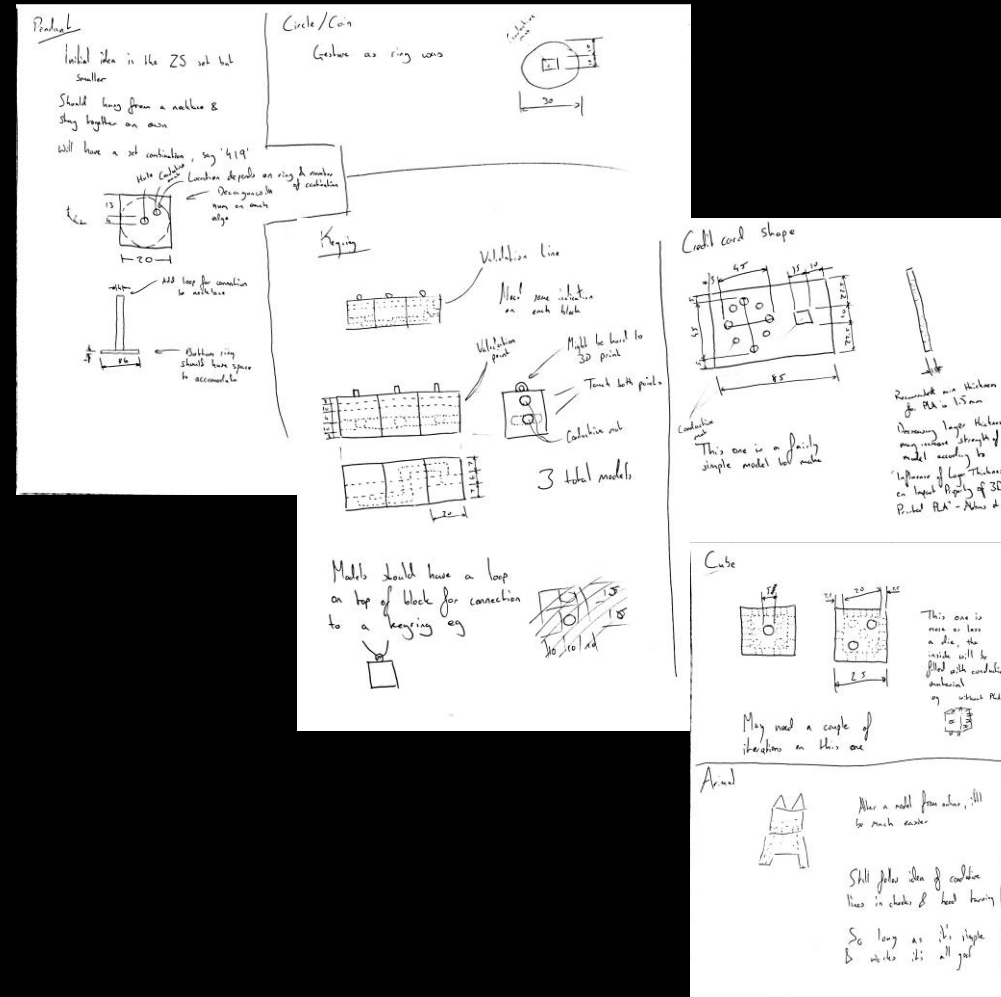 Pendant
Initial idea is the ZS set but
smaller
Should hang from a necklace &
stay together on own
Will have a set combination, say '419'
Hole
Conductive
Location depends on ring & number
of combination
num on each
edge
13
20
Add loop for connection
to necklace
Bottom ring
should have space
to accomodate
86
Circle/Coin
Gesture as ring was
30
Keyring
Validation Line
Need some indication
on each block
Validation
point
Might be hard to
3D print
Touch both points
Conductive mat
3 total models
20
Models should have a loop
on top of block for connection
to a keyring eg
15
15
Credit card shape
45
15
10
5
45
22.5
10
22.5
85
Conductive
mat
This one is a fairly
simple model to make
Recommended min thickness
for PLA is 1.5mm
Decreasing layer thickness
may increase strength of
model according to
"Influence of Layer Thickness
on Impact Property of 3D
Printed PLA" -
Cube
20
25
This one is
more or less
a die, the
inside will be
filled with conductive
material
eg without PLA
May need a couple of
iterations on this one
Animal
Alter a model from online, it'll
be much easier
Still follow idea of conductive
lines in cheeks & head turning
So long as it's simple
& works it's all good